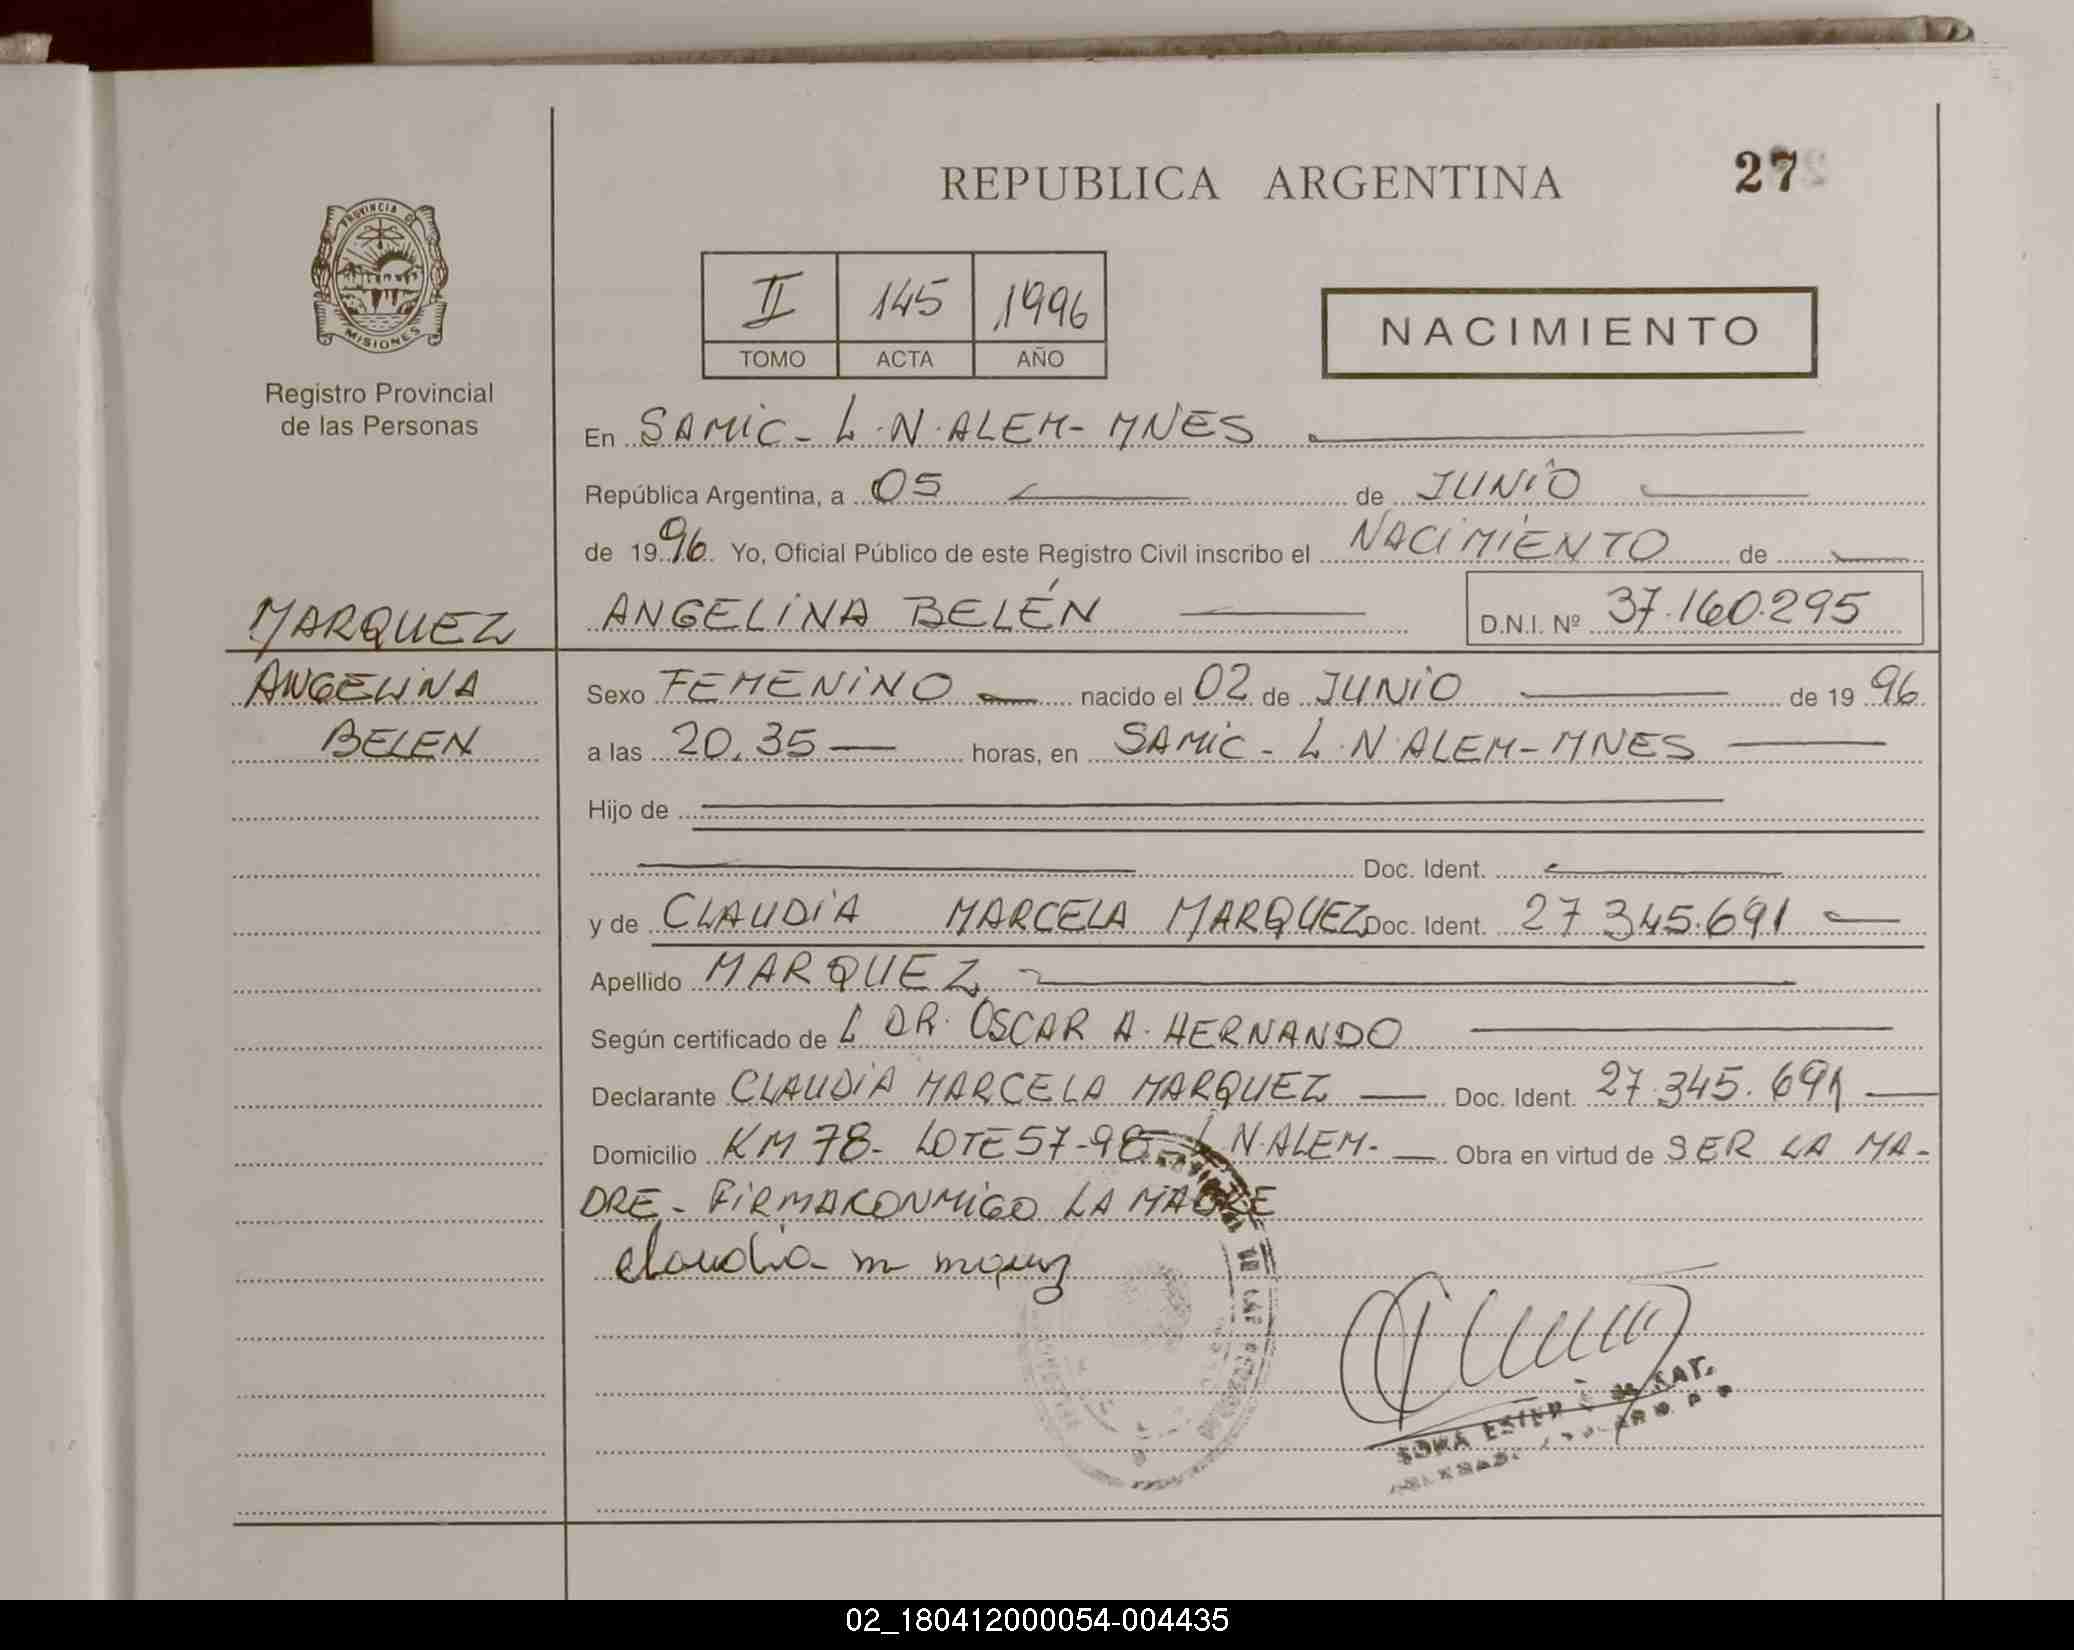 REPUBLICA ARGENTINA
27
PROVINCIA DE
MISIONES
Registro Provincial
de las Personas
II 145 1996
TOMO ACTA AÑO
NACIMIENTO
En SAMIC - L.N. ALEM - MNES
República Argentina, a 05 de JUNIO
de 1996 Yo, Oficial Público de este Registro Civil inscribo el NACIMIENTO de
MARQUEZ
ANGELINA BELÉN D.N.I. Nº 37.160.295
ANGELINA
Sexo FEMENINO nacido el 02 de JUNIO de 19 96
BELEN
a las 20,35 horas, en SAMIC - L.N. ALEM - MNES
Hijo de
Doc. Ident.
y de CLAUDIA MARCELA MARQUEZ Doc. Ident. 27 345.691
Apellido MARQUEZ
Según certificado de L DR. OSCAR A. HERNANDO
Declarante CLAUDIA MARCELA MARQUEZ Doc. Ident. 27.345.691
Domicilio KM 78 - LOTE 57-98 - L N. ALEM - Obra en virtud de SER LA MA-
DRE - FIRMA CONMIGO LA MADRE
Claudia m
ESTER
02_180412000054-004435